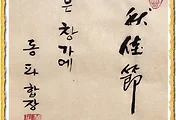 秋佳節
은 창가에
동파합장